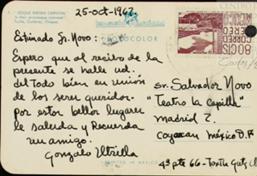 25-oct-1962.
Estimado Sr. Novo:
Espero que al recibo de la
presente se halle ud.
del todo bien en unión
de los seres queridos.
Por estos bellos lugares
le saluda y Recuerda
un amigo.
Gonzalo Utrilla
80 CTS
CORREO
MEXICO
Sr. Salvador Novo
"Teatro la Capilla"
Madrid 7.
Coyoacan México D.F
4ª pte 66 - Tuxtla Gutz. Ch